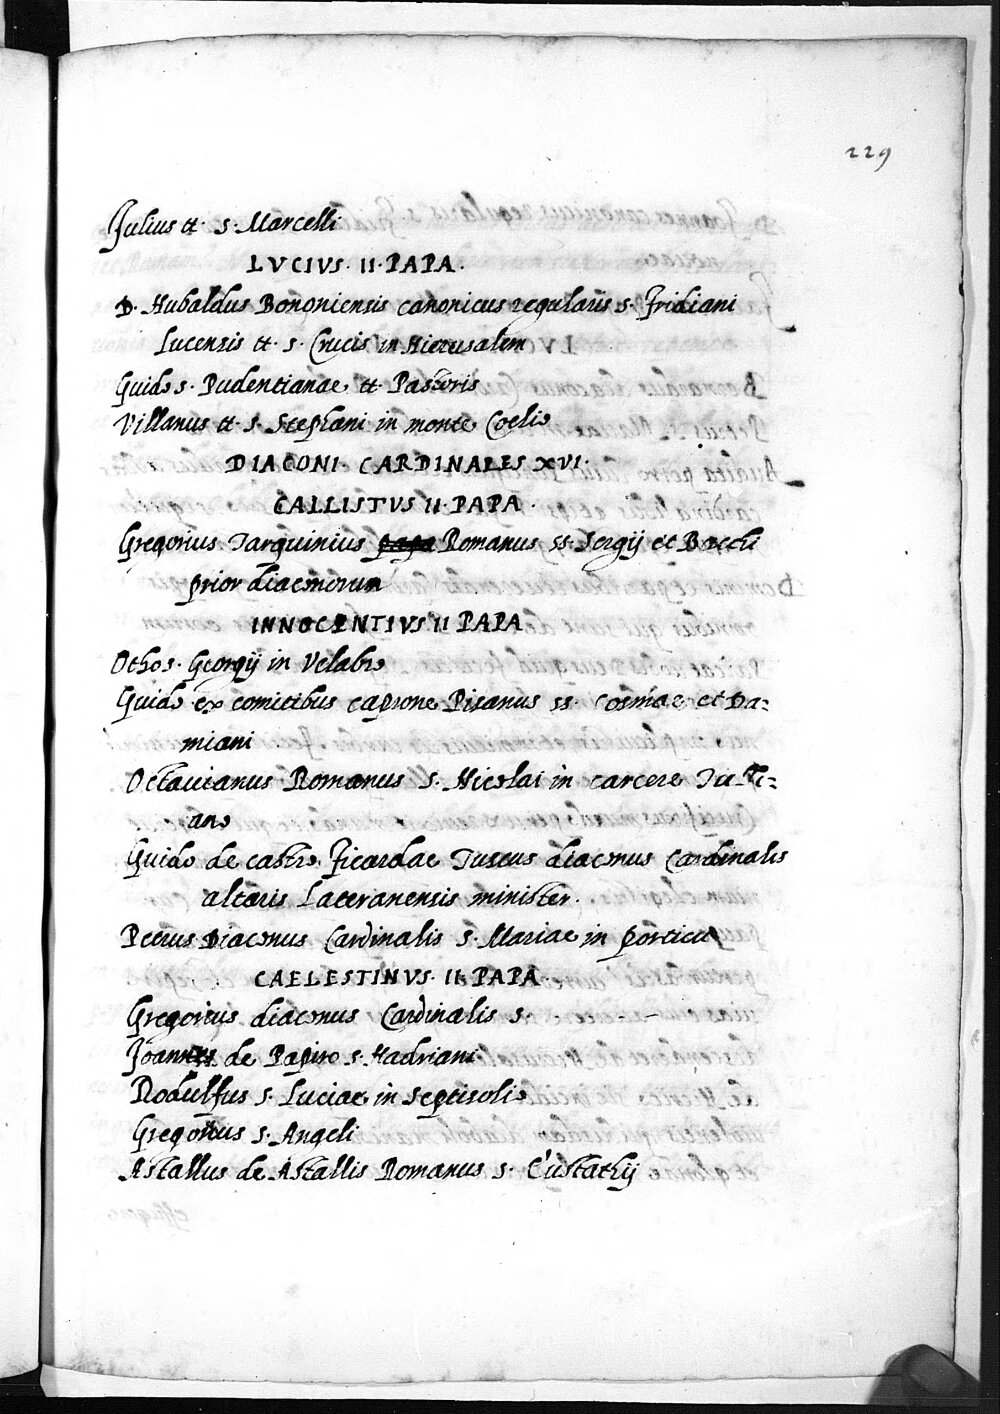 229
Julius tt. s. Marcelli
LVCIVS. II. PAPA.
D. Hubaldus Bononiensis canonicus regularis s. Fridiani
Lucensis tt. s. Crucis in Hierusalem
Guido s. Pudentianae tt. Pastoris
Villanus tt. s. Stephani in monte Coelio
DIACONI. CARDINALES XVI.
CALLISTVS II. PAPA.
Gregorius Tarquinius papa Romanus ss. Sergij et Bacchi
prior diaconorum
INNOCENTIVS II PAPA
Otho s. Georgij in Velabro
Guido ex comitibus caprone Pisanus ss. Cosmae et Da-
miani
Octavianus Romanus s. Nicolai in carcere Tulli-
ano
Guido de castro ficardae Tuscus diaconus Cardinalis
altaris Lateranensis minister.
Petrus Diaconus Cardinalis s. Mariae in porticu
CAELESTINVS. II. PAPA.
Gregorius diaconus Cardinalis s.
Joannes de Papiro s. Hadriani
Rodulfus s. Luciae in septisolio
Gregorius s. Angeli
Astallus de Astallis Romanus s. Eustathij